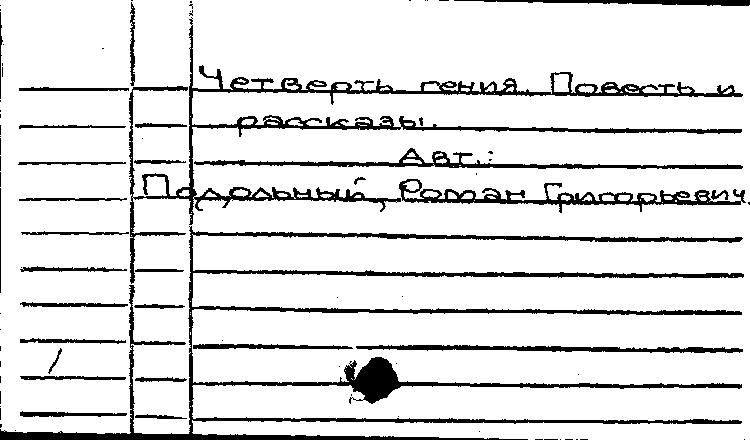 Четверть гения. Повесть и
рассказы.
Авт.:
Подольный, Роман Григорьевич.